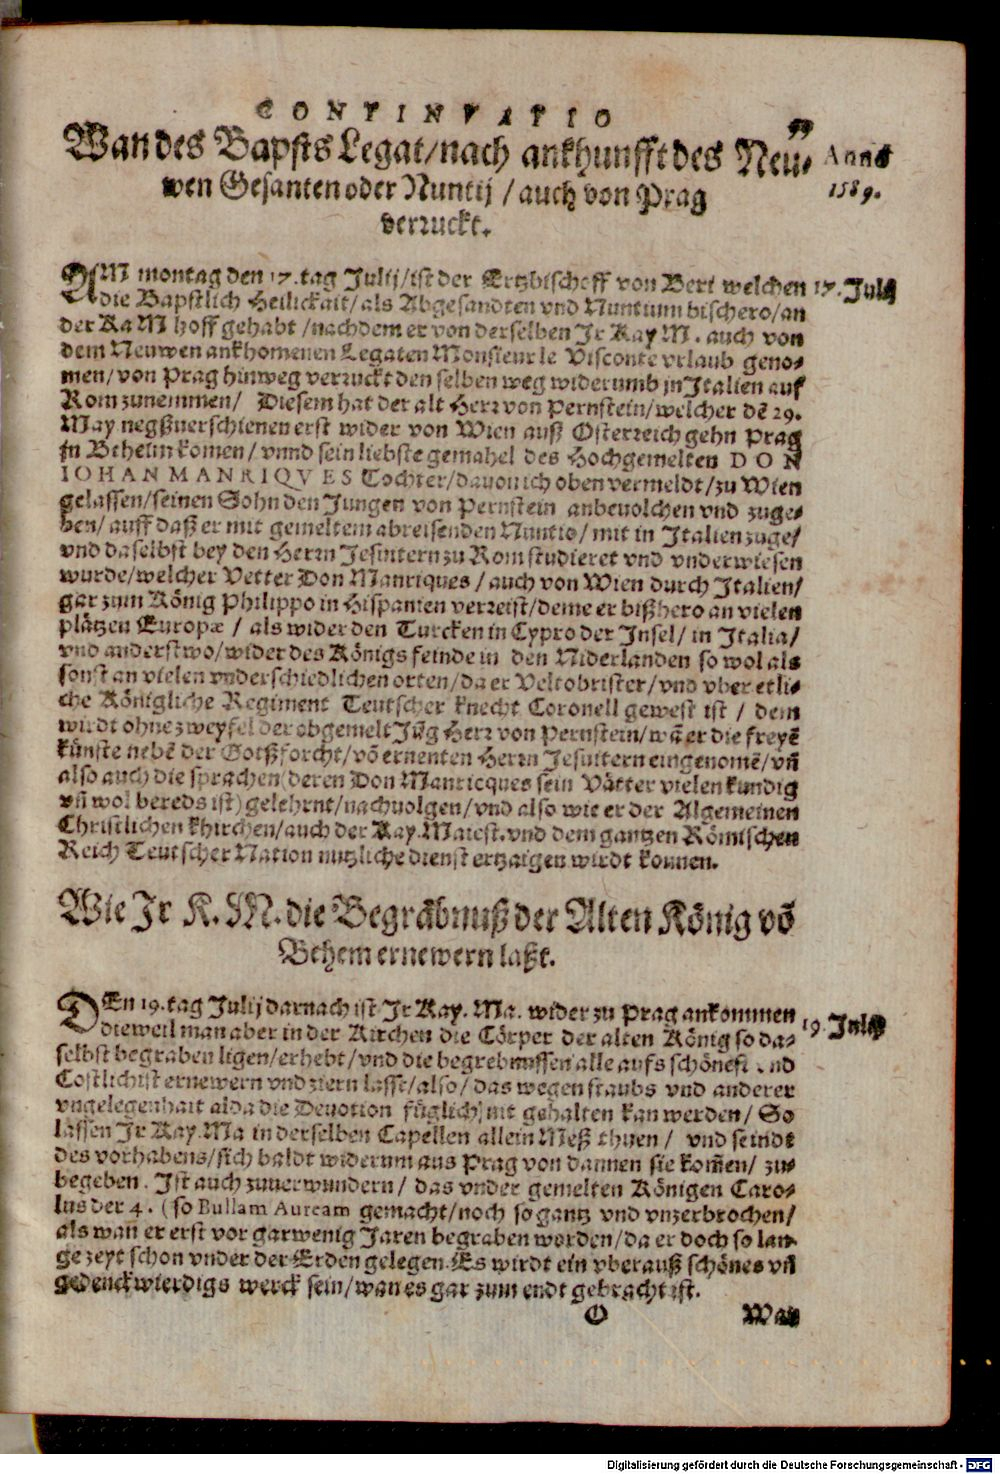 CONTINVATIO
99
Wan des Bapsts Legat/nach ankhunfft des Neu-
wen Gesanten oder Nuntij /auch von Prag
verruckt.
Anno
1589.
AM montag den 17.tag Julij/ist der Ertzbischoff von Beri welchen
17. Julij
die Bapstlich Heilickait/als Abgesandten vnd Nuntium bischero/an
der Ka M hoff gehabt /nachdem er von derselben Jr Kay M. auch von
dem Neuwen ankhomenen Legaten Monsieur le Visconte vrlaub geno-
men/von Prag hinweg verruckt den selben weg widerumb in Italien auf
Rom zunemmen/ Diesem hat der alt Herr von Pernstein/welcher dē 29.
May negßuerschienen erst wider von Wien auß Osterreich gehn Prag
in Behem komen/ vnnd sein liebste gemahel des Hochgemelten DON
IOHAN MANRIQVES Tochter/dauon ich oben vermeldt/zu Wien
gelassen/seinen Sohn den Jungen von Pernstein anbeuolchen vnd zuge-
ben/ auff daß er mit gemeltem abreisenden Nuntio/mit in Italien zuge/
vnd daselbst bey den Herrn Jesuitern zu Rom studieret vnd vnderwiesen
wurde/welcher Vetter Don Manriques /auch von Wien durch Italien/
gar zum König Philippo in Hispanien verreist/deme er bißhero an vielen
plätzen Europæ / als wider den Turcken in Cypro der Insel/ in Italia/
vnd anderstwo/wider des Königs feinde in den Niderlanden so wol als
sonst an vielen vnderschiedlichen orten/da er Veltobrister/vnd vber etli-
che Königliche Regiment Teutscher knecht Coronell gewest ist / dem
wirdt ohne zweyfel der obgemelt Jūg Herr von Pernstein/wā er die freyē
künste nebē der Gotßforcht/vō ernenten Herrn Jesuitern eingenomē/vñ
also auch die sprachen(deren Don Manricques sein Vätter vielen kundig
vñ wol bereds ist)gelehrnt/nachuolgen/vnd also wie er der Algemeinen
Christlichen khirchen/auch der Kay.Maiest.vnd dem gantzen Römischen
Reich Teutscher Nation nutzliche dienst ertzaigen wirdt konnen.
Wie Jr K. M. die Begräbnuß der Alten König vō
Behem ernewern laßt.
DEn 19.tag Julij darnach ist Jr Kay. Ma. wider zu Prag ankommen
19. Julij
dieweil man aber in der Kirchen die Cörper der alten König so da-
selbst begraben ligen/erhebt/vnd die begrebnussen alle aufs schönest vnd
Costlichist ernewern vnd ziern lasst/also/das wegen staubs vnd anderer
vngelegenhait alda die Deuotion füglich nit gehalten kan werden/ So
lassen Jr Kay.Ma in derselben Capellen allein Meß thuen/ vnd seindt
des vorhabens/sich baldt widerum aus Prag von dannen sie kom̄en/ zu-
begeben. Ist auch zuuerwundern/ das vnder gemelten Königen Caro-
lus der 4. (so Bullam Auream gemacht/noch so gantz vnd vnzerbrochen/
als wañ er erst vor gar wenig Jaren begraben worden/da er doch so lan-
ge zeyt schon vnder der Erden gelegen. Es wirdt ein vberauß schönes vñ
gedenckwierdigs werck sein/wan es gar zum endt gebracht ist.
O
Wan
Digitalisierung gefördert durch die Deutsche Forschungsgemeinschaft - DFG